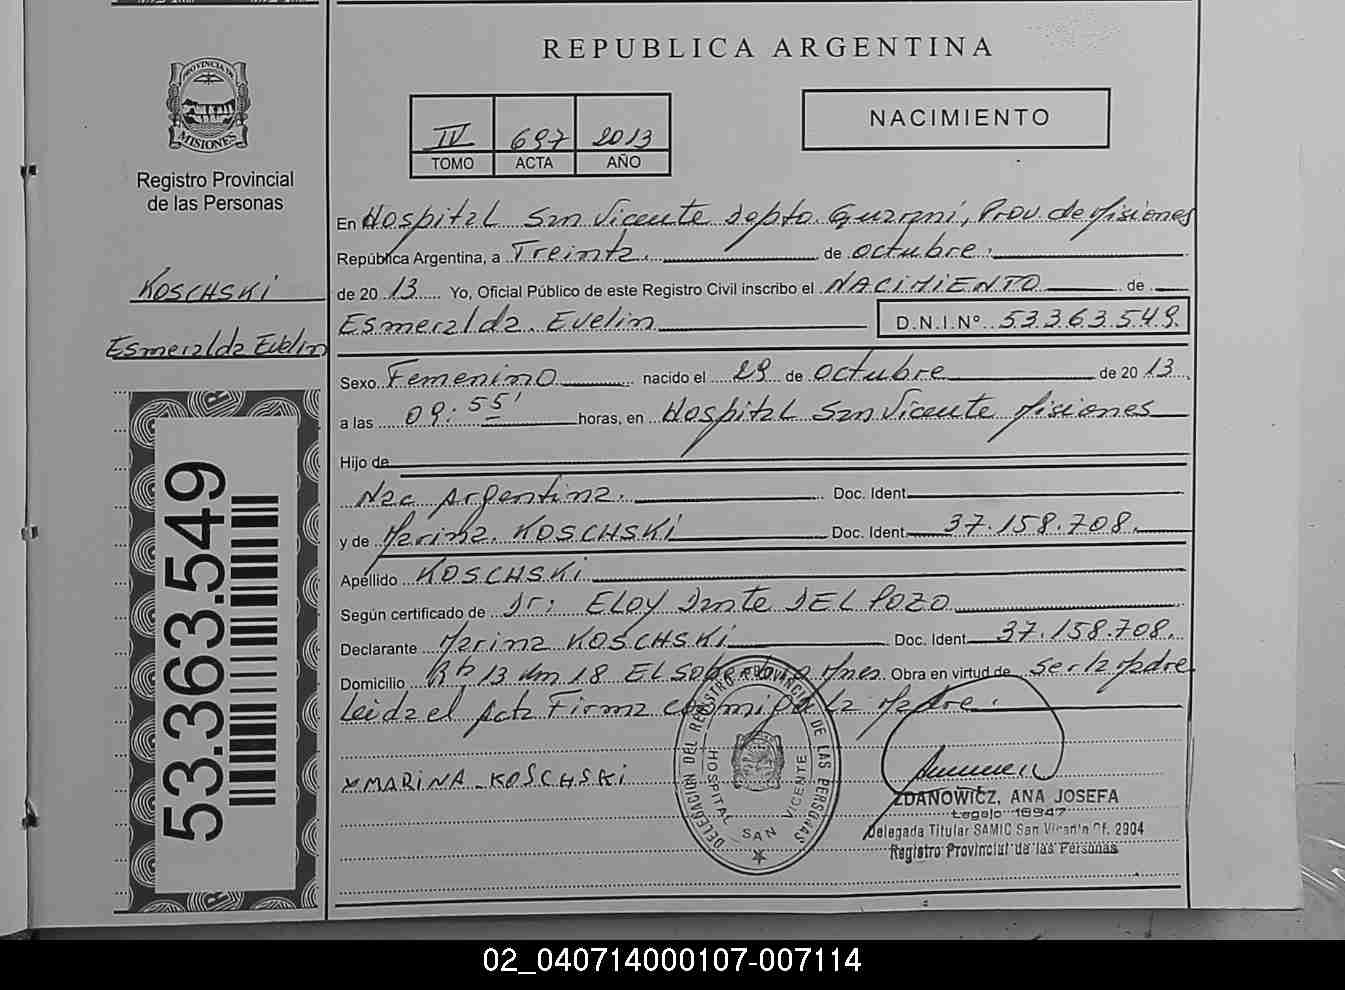 REPUBLICA ARGENTINA
PROVINCIA DE MISIONES
Registro Provincial
de las Personas
KOSCHSKI
Esmeralda Evelin
53.363.549
IV 697 2013
TOMO ACTA AÑO
NACIMIENTO
En Hospital San Vicente Depto. Guarani, Prov de Misiones
República Argentina, a Treinta. de octubre.
de 20 13 Yo, Oficial Público de este Registro Civil inscribo el NACIMIENTO de
Esmeralda. Evelin D.N.I.Nº 53.363.549.
Sexo Femenino nacido el 29 de octubre de 20 13
a las 09:55' horas, en Hospital San Vicente Misiones
Hijo de
Nac Argentina. Doc. Ident.
y de Marina. KOSCHSKI Doc. Ident. 37.158.708.
Apellido KOSCHSKI
Según certificado de Dr: ELOY Dante DEL POZO
Declarante Marina KOSCHSKI Doc. Ident. 37.158.708.
Domicilio 13 Km 18 EL Mnes. Obra en virtud de ser la Madre
Leida el Acta Firma conmigo la Madre.
x MARINA KOSCHSKI
DELEGACION DEL REGISTRO PROVINCIAL DE LAS PERSONAS
HOSPITAL SAN VICENTE
ZDANOWICZ, ANA JOSEFA
Legajo 16947
Delegada Titular SAMIC San Vicente Of. 2904
Registro Provincial de las Personas
02_040714000107-007114